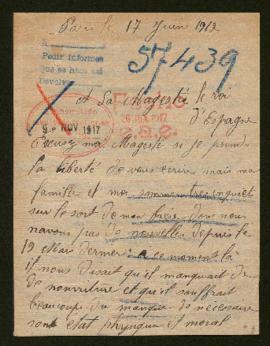 Paris le 17 Juin 1917
Pedir informes
que se haga est
Devolver
57439
et Sa Majesté le roi
d'Espagne
9 - NOV 1917
Excusez moi Majesté si je prends
la liberté de vous écrire mais ma
famille et moi sommes très inquiets
sur le sort de mon frère dont nous
navons pas de nouvelles depuis le
19 Mars dernier a ce moment la
il nous disait qu'il manquait de
de nourriture et qu'il souffrait
beaucoup du manque de nécessaire
son état physique et moral